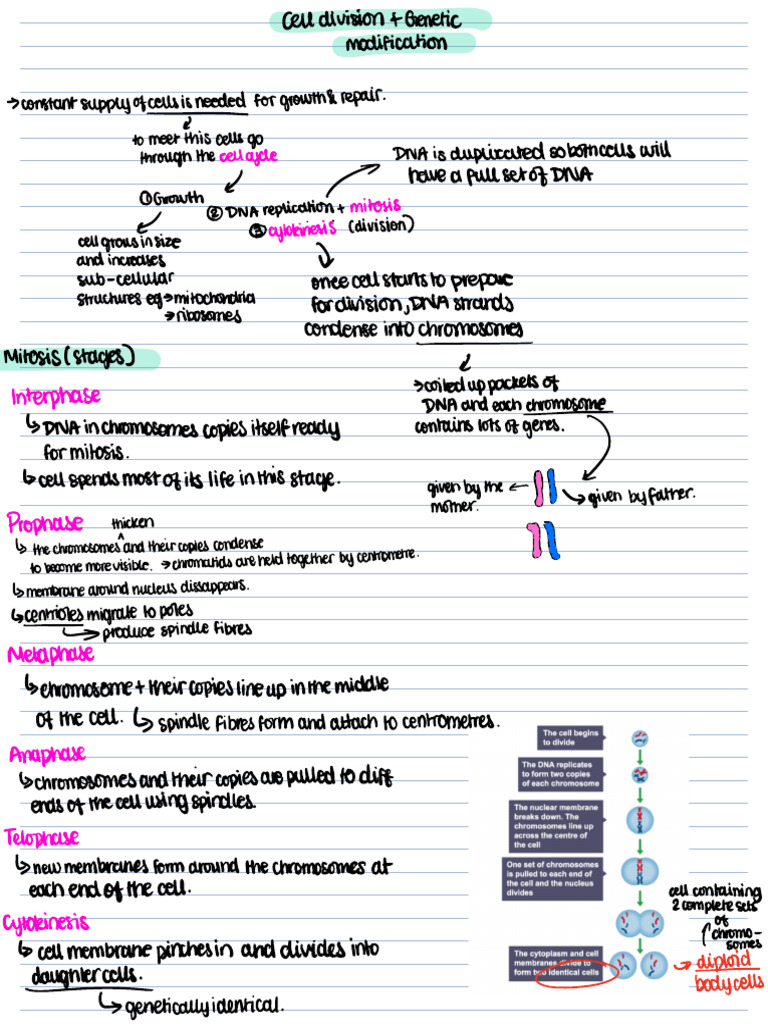 Cell division + Genetic
modification
→ constant supply of cells is needed for growth & repair.
to meet this cells go
through the cell cycle
DNA is duplicated so both cells will
have a full set of DNA
① Growth
② DNA replication + mitosis
③ cytokinesis (division)
cell grows in size
and increases
sub-cellular
structures eg → mitochondria
→ ribosomes
once cell starts to prepare
for division, DNA strands
condense into chromosomes
Mitosis (stages)
→ coiled up packets of
DNA and each chromosome
contains lots of genes.
given by the
mother.
given by father.
Interphase
↳ DNA in chromosomes copies itself ready
for mitosis.
↳ cell spends most of its life in this stage.
Prophase
thicken
↳ the chromosomes ^ and their copies condense
to become more visible. → chromatids are held together by centrometre.
↳ membrane around nucleus dissappears.
↳ centrioles migrate to poles
→ produce spindle fibres
Metaphase
↳ chromosome + their copies line up in the middle
of the cell. ↳ spindle fibres form and attach to centrometres.
Anaphase
↳ chromosomes and their copies are pulled to diff
ends of the cell using spindles.
Telophase
↳ new membranes form around the chromosomes at
each end of the cell.
Cytokinesis
↳ cell membrane pinches in and divides into
daughter cells.
↳ genetically identical.
The cell begins
to divide
The DNA replicates
to form two copies
of each chromosome
The nuclear membrane
breaks down. The
chromosomes line up
across the centre of
the cell
One set of chromosomes
is pulled to each end of
the cell and the nucleus
divides
The cytoplasm and cell
membranes divide to
form two identical cells
cell containing
2 complete sets
of
chromo-
somes
→ diploid
body cells